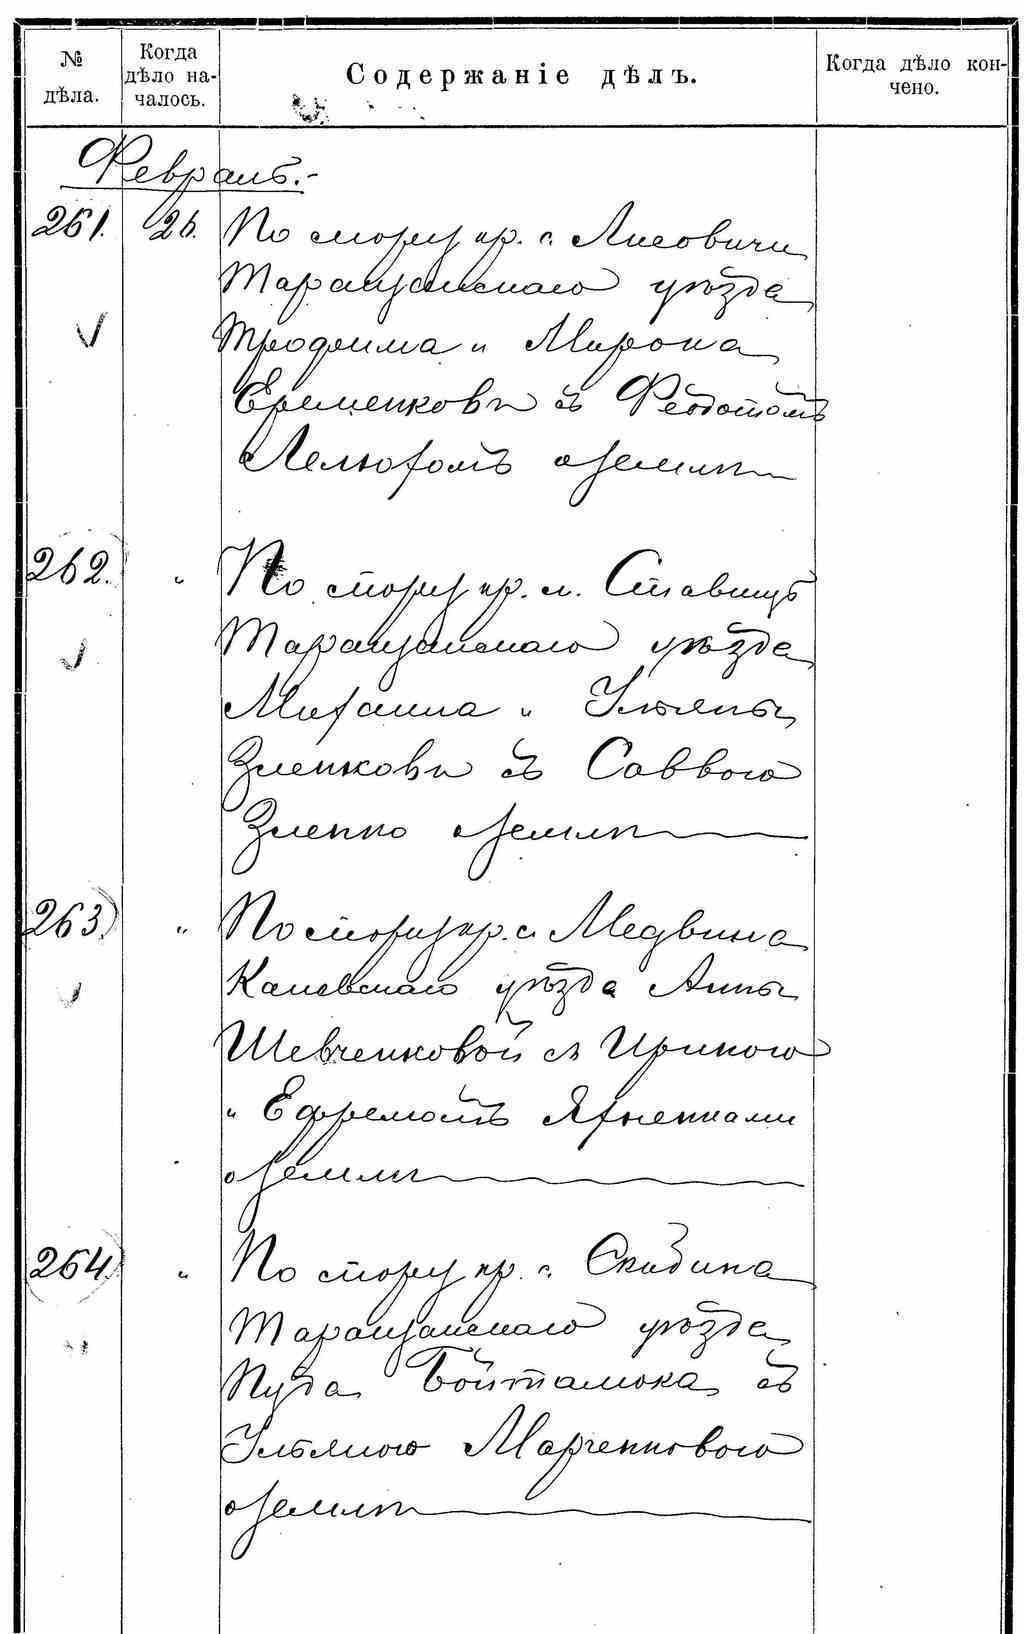 № дѣла.
Когда дѣло началось.
Содержаніе дѣлъ.
Когда дѣло кончено.
Февраль.-
261. 26. По спору кр. с. Лисовичи
Таращанскаго уѣзда
Трофима и Мирона
Еременковы съ Феодотомъ
Лелюхомъ о землѣ
262. " По спору кр. м. Ставищъ
Таращанскаго уѣзда
Михаила и Ульяны
Зленковы съ Саввою
Зленко о землѣ
263. " По спору кр. с. Медвина
Каневскаго уѣзда Анны
Шевченковой съ Ириною
и Ефремомъ Яхненками
о землѣ
264. " По спору кр. с. Скибина
Таращанскаго уѣзда
Пуда съ
Ульяною Марченковою
о землѣ